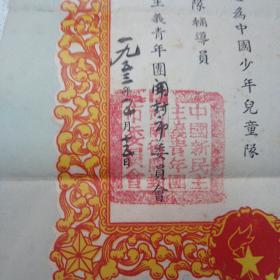 為中國少年兒童隊
隊輔導員
主義青年團開封市委員會
一九五三年 月十五日
中國新民主
主義青年團